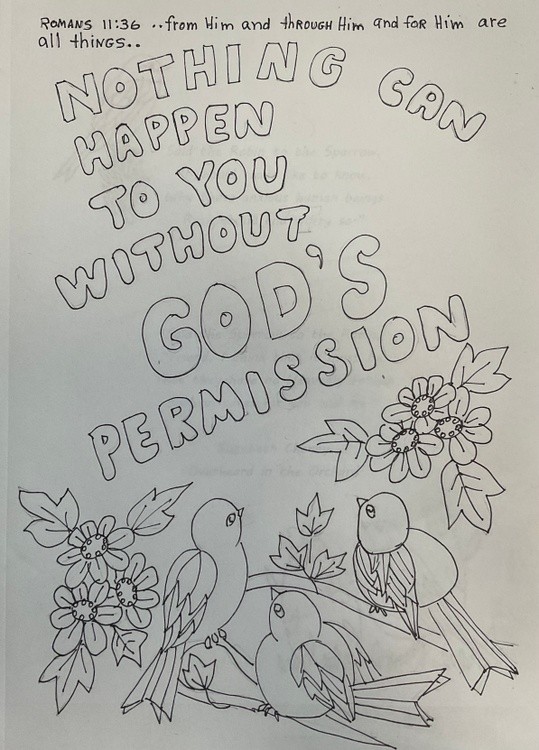 ROMANS 11:36 ..from Him and thROUGH Him and foR Him are
all thiNGS..
NOTHING CAN
HAPPEN
TO YOU
WITHOUT
GOD'S
PERMISSION